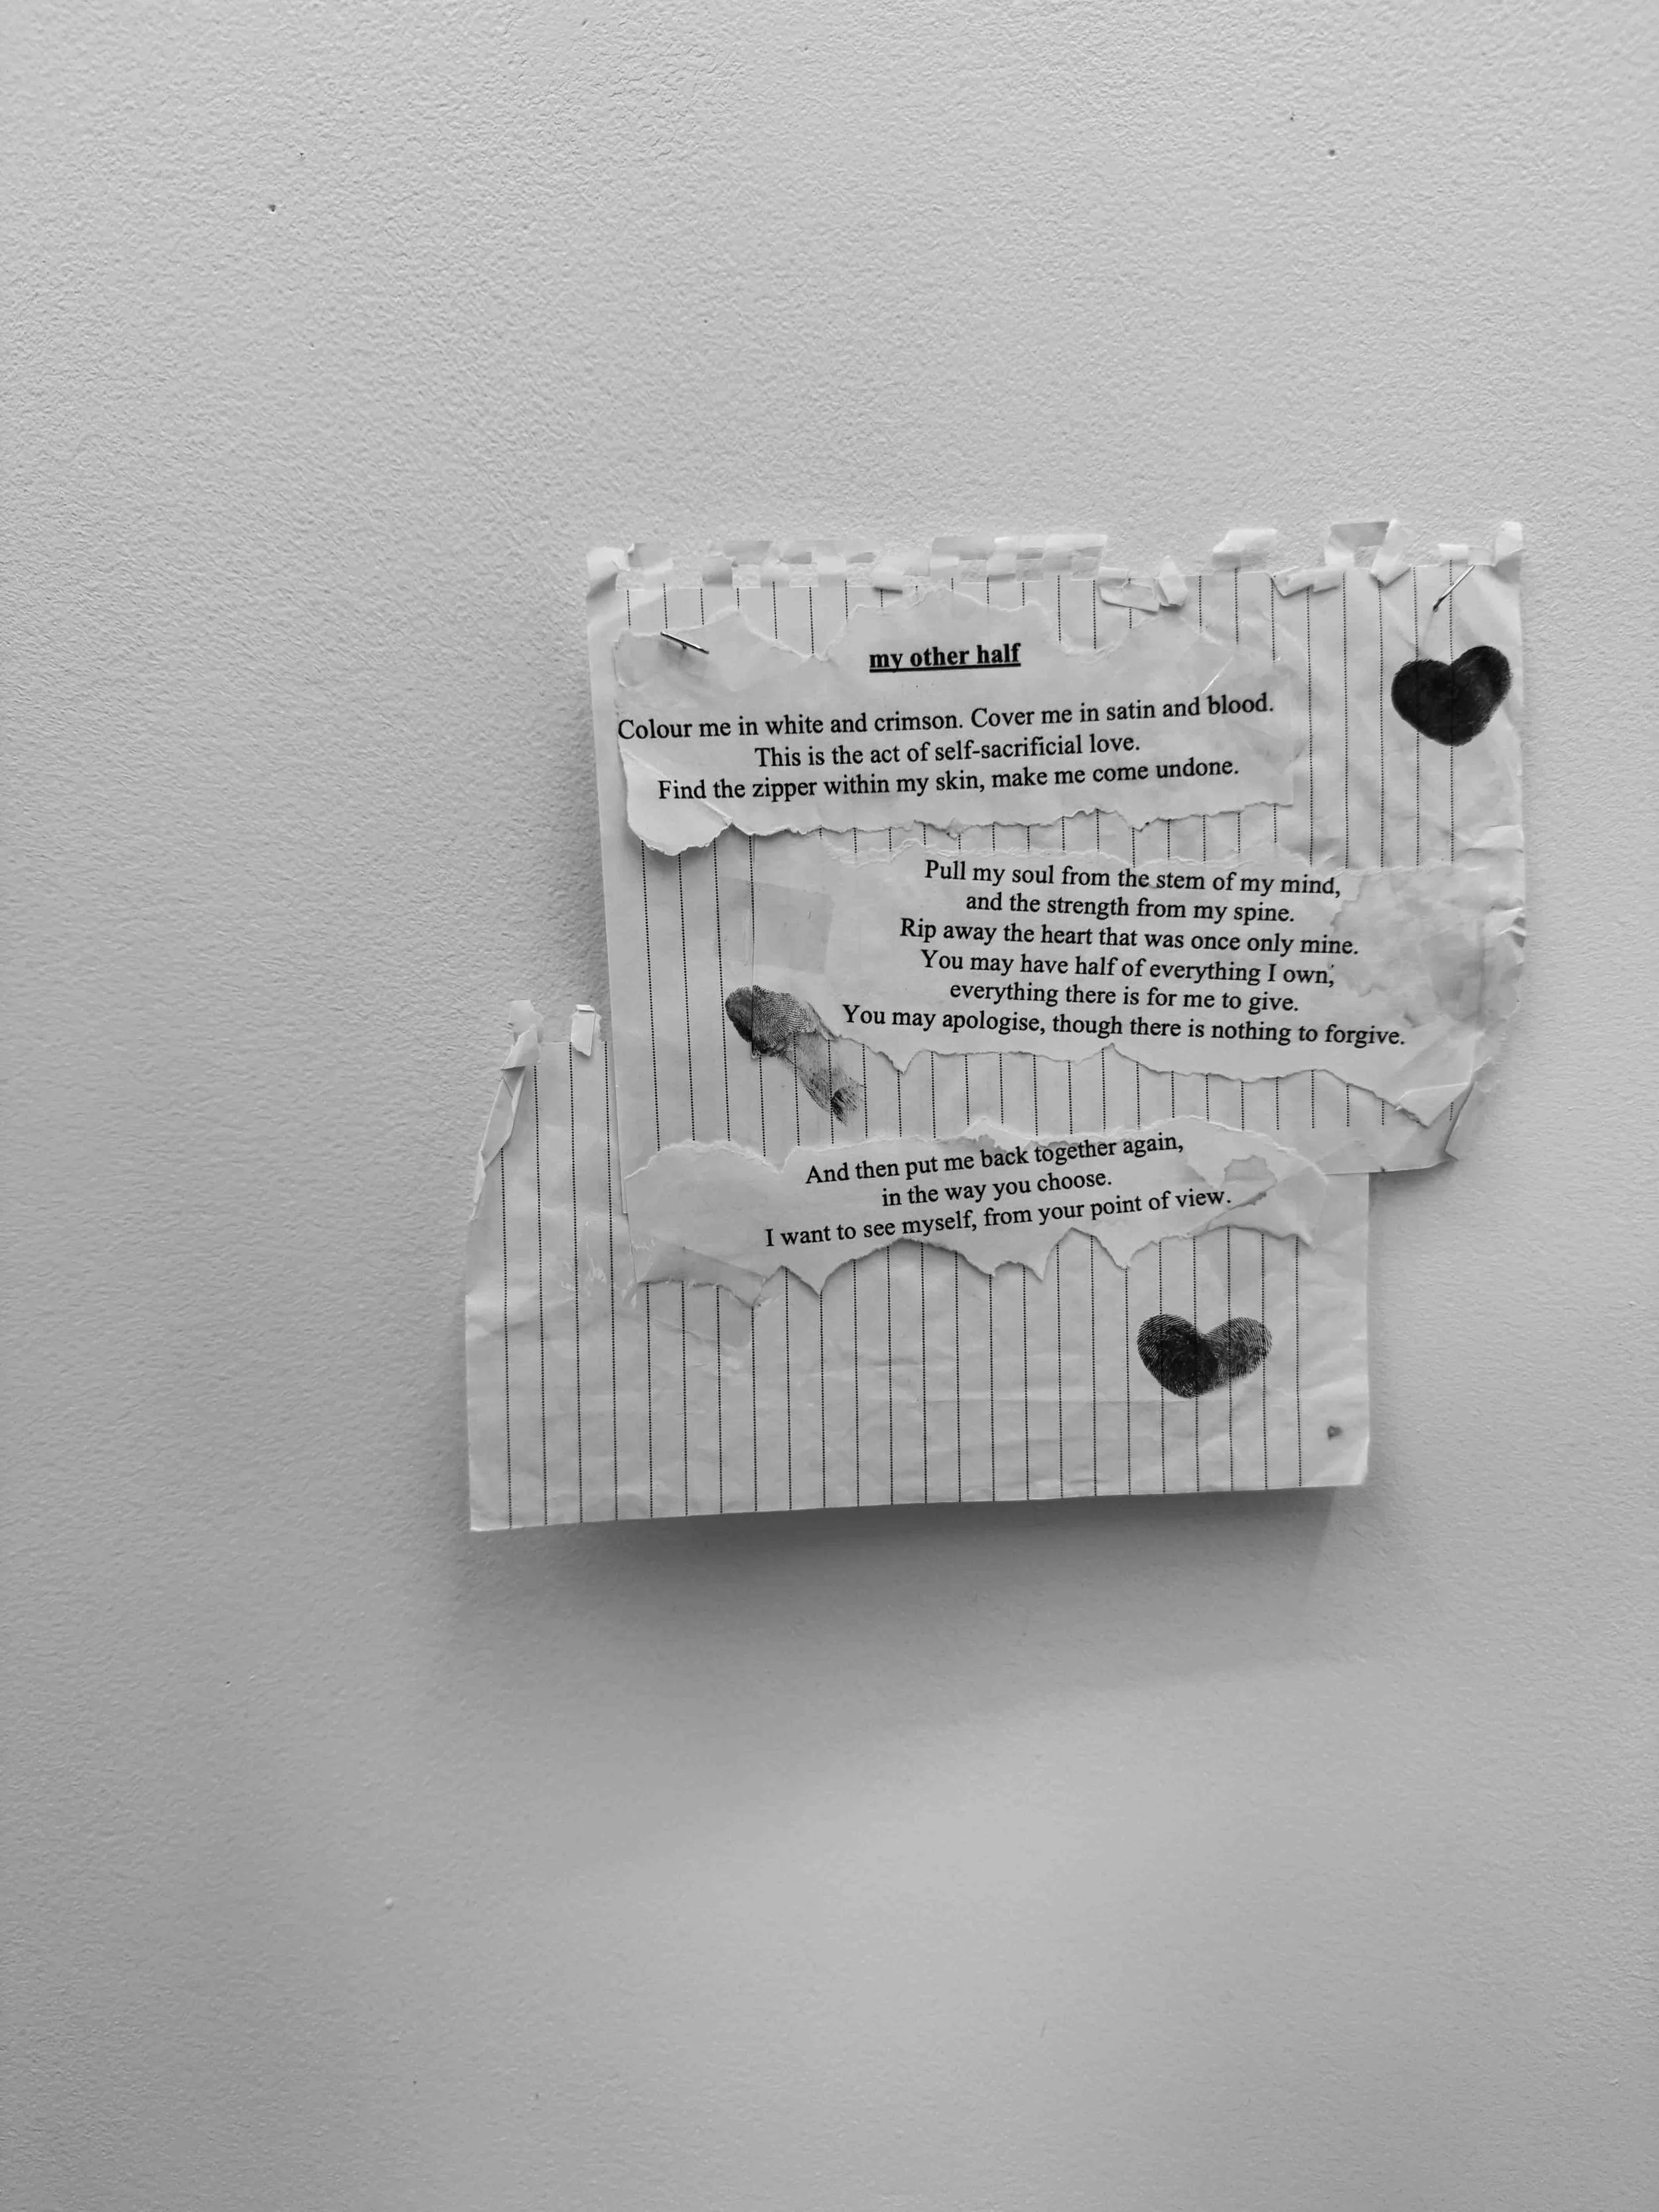 my other half
Colour me in white and crimson. Cover me in satin and blood.
This is the act of self-sacrificial love.
Find the zipper within my skin, make me come undone.
Pull my soul from the stem of my mind,
and the strength from my spine.
Rip away the heart that was once only mine.
You may have half of everything I own,
everything there is for me to give.
You may apologise, though there is nothing to forgive.
And then put me back together again,
in the way you choose.
I want to see myself, from your point of view.